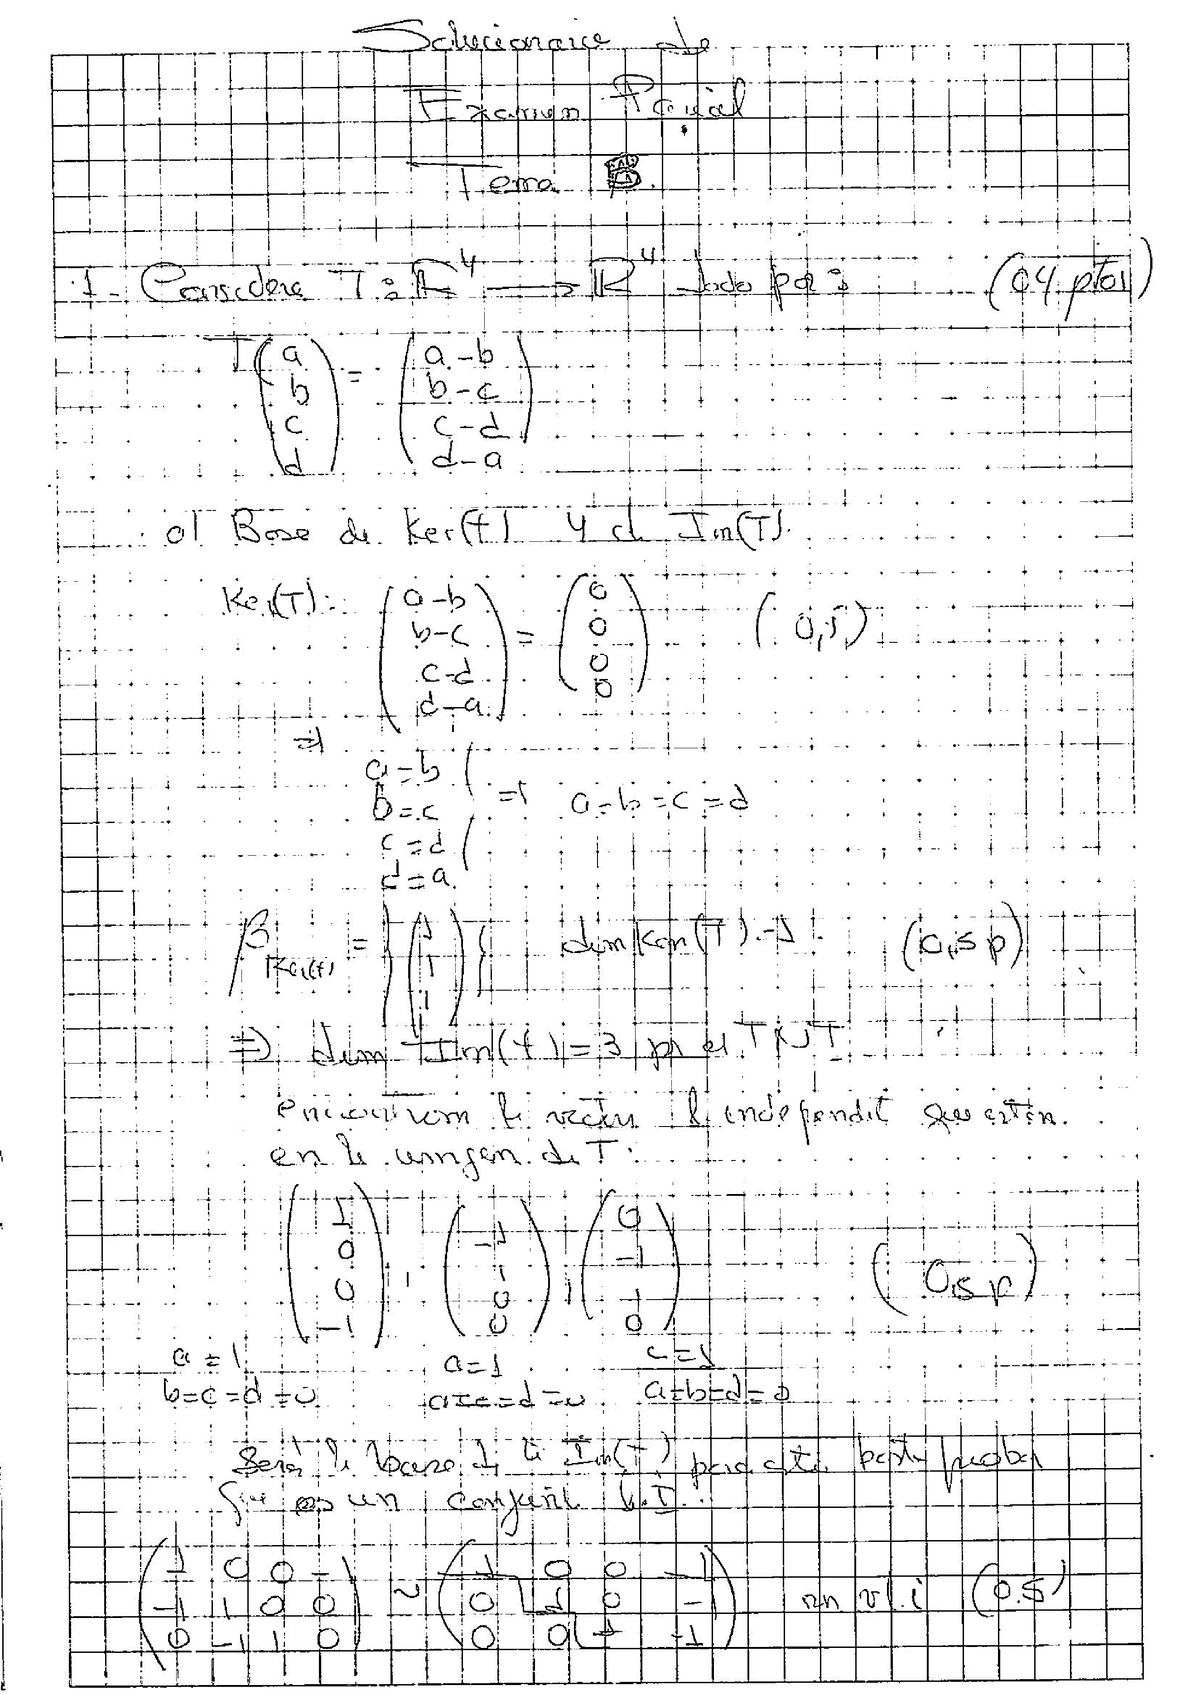 Solucionario de
Examen Parcial
Tema B.
1- Considere T: ℝ⁴ → ℝ⁴ dado por: (04 ptos)
T(a b c d) = (a-b b-c c-d d-a)
a) Base de Ker(t) y de Im(T).
Ker(T): (a-b b-c c-d d-a) = (0 0 0 0) (0,5)
⇒
a=b
b=c ⇒ a=b=c=d
c=d
d=a.
β Ker(t) = {(1 1 1)} dim Ker(T)=1. (0,5 p)
⇒) dim Im(t)=3 por el
encontrem vectu l. independit que estén
en la imagen de T:
(1 0 0 -1), (-1 1 0 0), (0 -1 1 0) (0,5 p)
a=1 a=1 c=1
b=c=d=0 a=c=d=0 a=b=d=0
Será la base de la Im(T) para esto basta probar
que es un conjunt L.I.
(1 0 0 -1 / -1 1 0 0 / 0 -1 1 0) ~ (1 0 0 -1 / 0 1 0 -1 / 0 0 1 -1) v l.i (0.5)